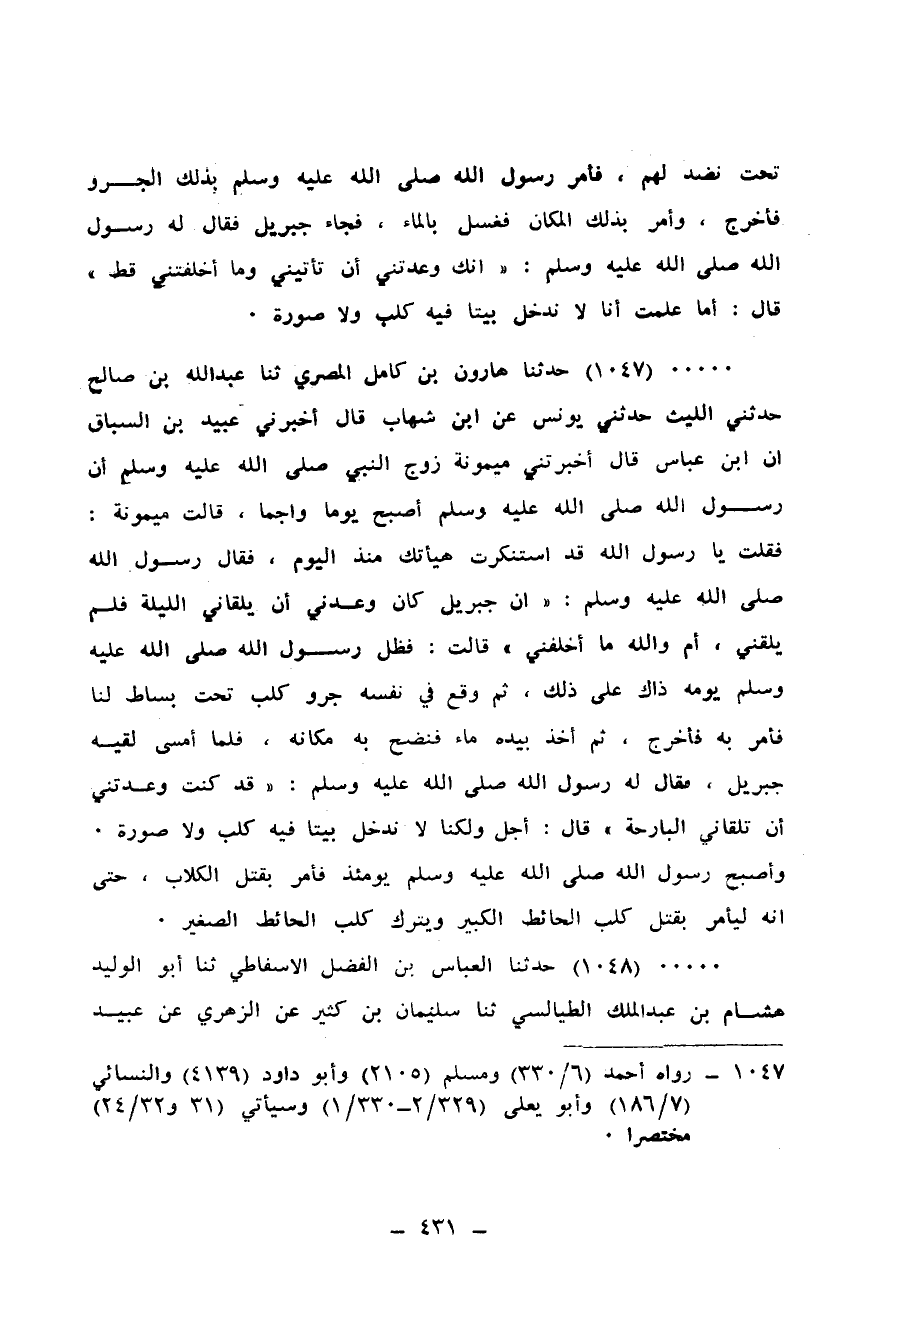 تحت نضد لهم ، فأمر رسول الله صلى الله عليه وسلم بذلك الجـــرو
فأخرج ، وأمر بذلك المكان فغسل بالماء ، فجاء جبريل فقال له رســول
الله صلى الله عليه وسلم : « انك وعدتني أن تأتيني وما أخلفتني قط »
قال : أما علمت أنا لا ندخل بيتا فيه كلب ولا صورة ٠
٠٠٠٠٠ (١٠٤٧) حدثنا هارون بن كامل المصري ثنا عبدالله بن صالح
حدثني الليث حدثني يونس عن ابن شهاب قال أخبرني عبيد بن السباق
ان ابن عباس قال أخبرتني ميمونة زوج النبي صلى الله عليه وسلم أن
رســـول الله صلى الله عليه وسلم أصبح يوما واجما ، قالت ميمونة :
فقلت يا رسول الله قد استنكرت هيأتك منذ اليوم ، فقال رســول الله
صلى الله عليه وسلم : « ان جبريل كان وعـدني أن يلقاني الليلة فلـم
يلقني ، أم والله ما أخلفني » قالت : فظل رســـول الله صلى الله عليه
وسلم يومه ذاك على ذلك ، ثم وقع في نفسه جرو كلب تحت بساط لنا
فأمر به فأخرج ، ثم أخذ بيده ماء فنضح به مكانه ، فلما أمسى لقيـه
جبريل ، فقال له رسول الله صلى الله عليه وسلم : « قد كنت وعـدتني
أن تلقاني البارحة » قال : أجل ولكنا لا ندخل بيتا فيه كلب ولا صورة ٠
وأصبح رسول الله صلى الله عليه وسلم يومئذ فأمر بقتل الكلاب ، حتى
انه ليأمر بقتل كلب الحائط الكبير ويترك كلب الحائط الصغير ٠
٠٠٠٠٠ (١٠٤٨) حدثنا العباس بن الفضل الاسفاطي ثنا أبو الوليد
هشـام بن عبدالملك الطيالسي ثنا سليمان بن كثير عن الزهري عن عبيـد
١٠٤٧ ــ رواه أحمد (٣٣٠/٦) ومسلم (٢١٠٥) وأبو داود (٤١٣٩) والنسائي
(١٨٦/٧) وأبو يعلى (٢/٣٢٩ــ١/٣٣٠) وسيأتي (٣١ و٢٤/٣٢)
مختصرا ٠
ــ ٤٣١ ــ